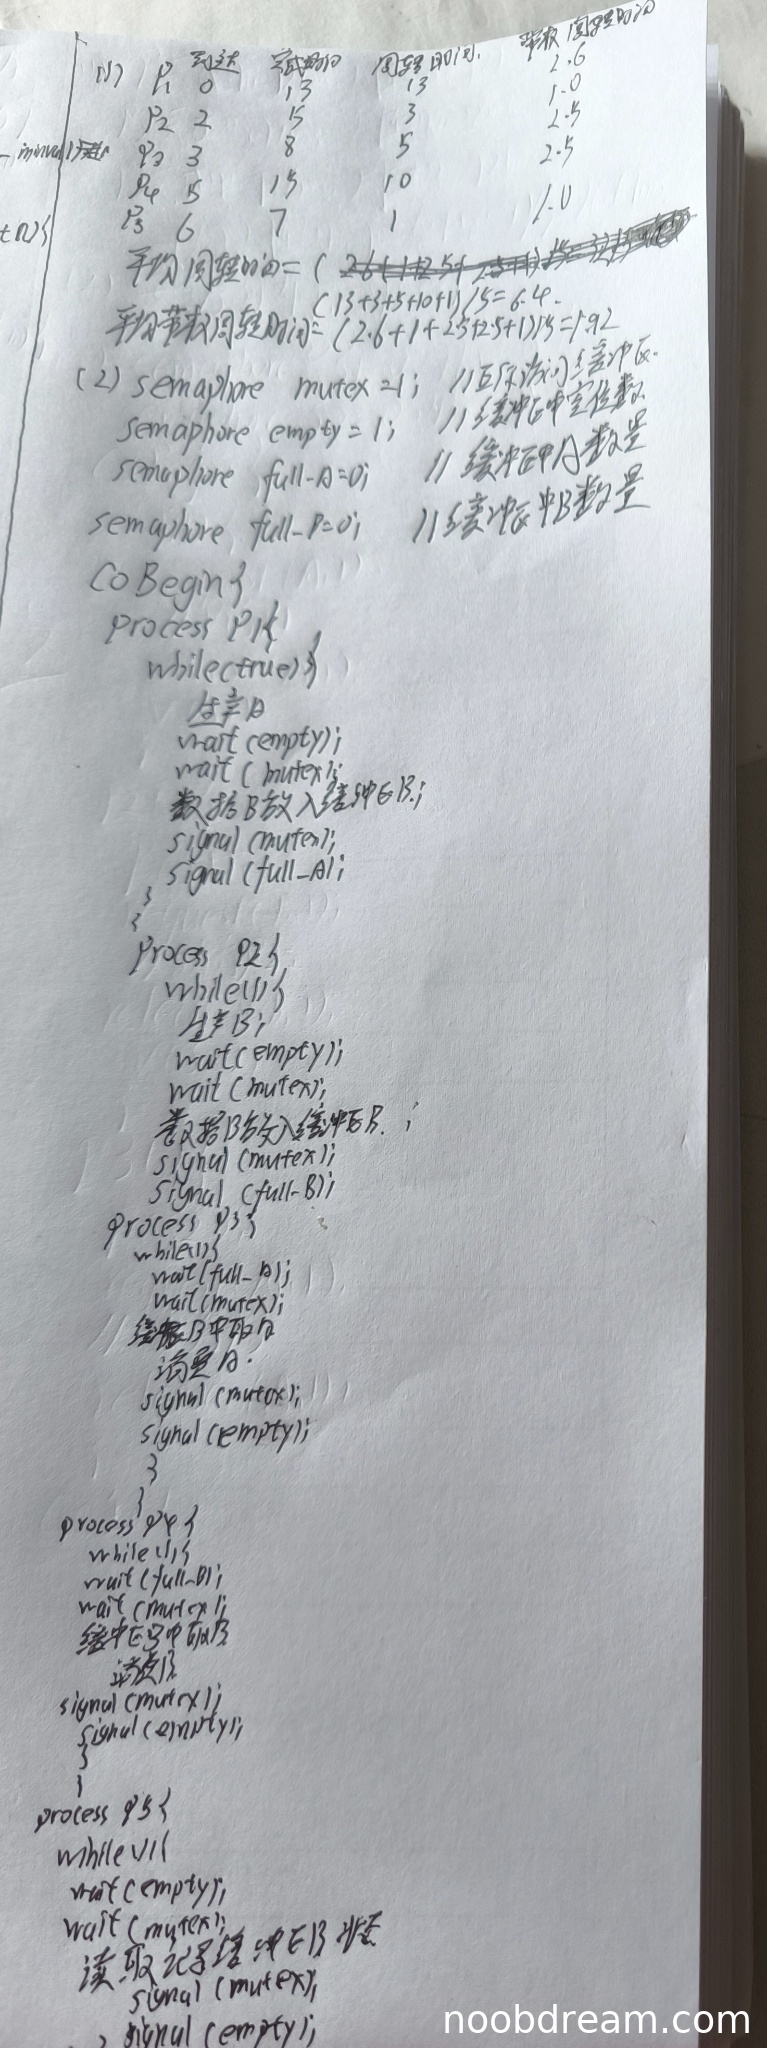 (1) 到达 完成时间 周转时间 带权周转时间
P1 0 13 13 2.6
P2 2 15 3 1.0
P3 3 8 5 2.5
P4 5 15 10 2.5
P5 6 7 1 1.0
平均周转时间=(
(13+3+5+10+1)/5=6.4.
平均带权周转时间=(2.6+1+2.5+2.5+1)/5=1.92
(2) semaphore mutex=1; //互斥访问缓冲区.
semaphore empty=1; //缓冲区中空位数
semaphore full-A=0; //缓冲区中A数量
semaphore full-B=0; //缓冲区中B数量
CoBegin{
process P1{
while(true){
生产A
wait(empty);
wait(mutex);
数据B放入缓冲区B;
signal(mutex);
signal(full_A);
}
}
process P2{
while(1){
生产B;
wait(empty);
wait(mutex);
数据B放入缓冲区B.;
signal(mutex);
signal(full-B);
process P3{
while(1){
wait(full_A);
wait(mutex);
缓冲区B中取A
消费A.
signal(mutex);
signal(empty);
}
}
process P4{
while(1){
wait(full-B);
wait(mutex);
缓冲区中取B
消费B
signal(mutex);
signal(empty);
}
}
process P5{
while(1){
wait(empty);
wait(mutex);
读取记录缓冲区B状态
signal(mutex);
signal(empty);
noobdream.com